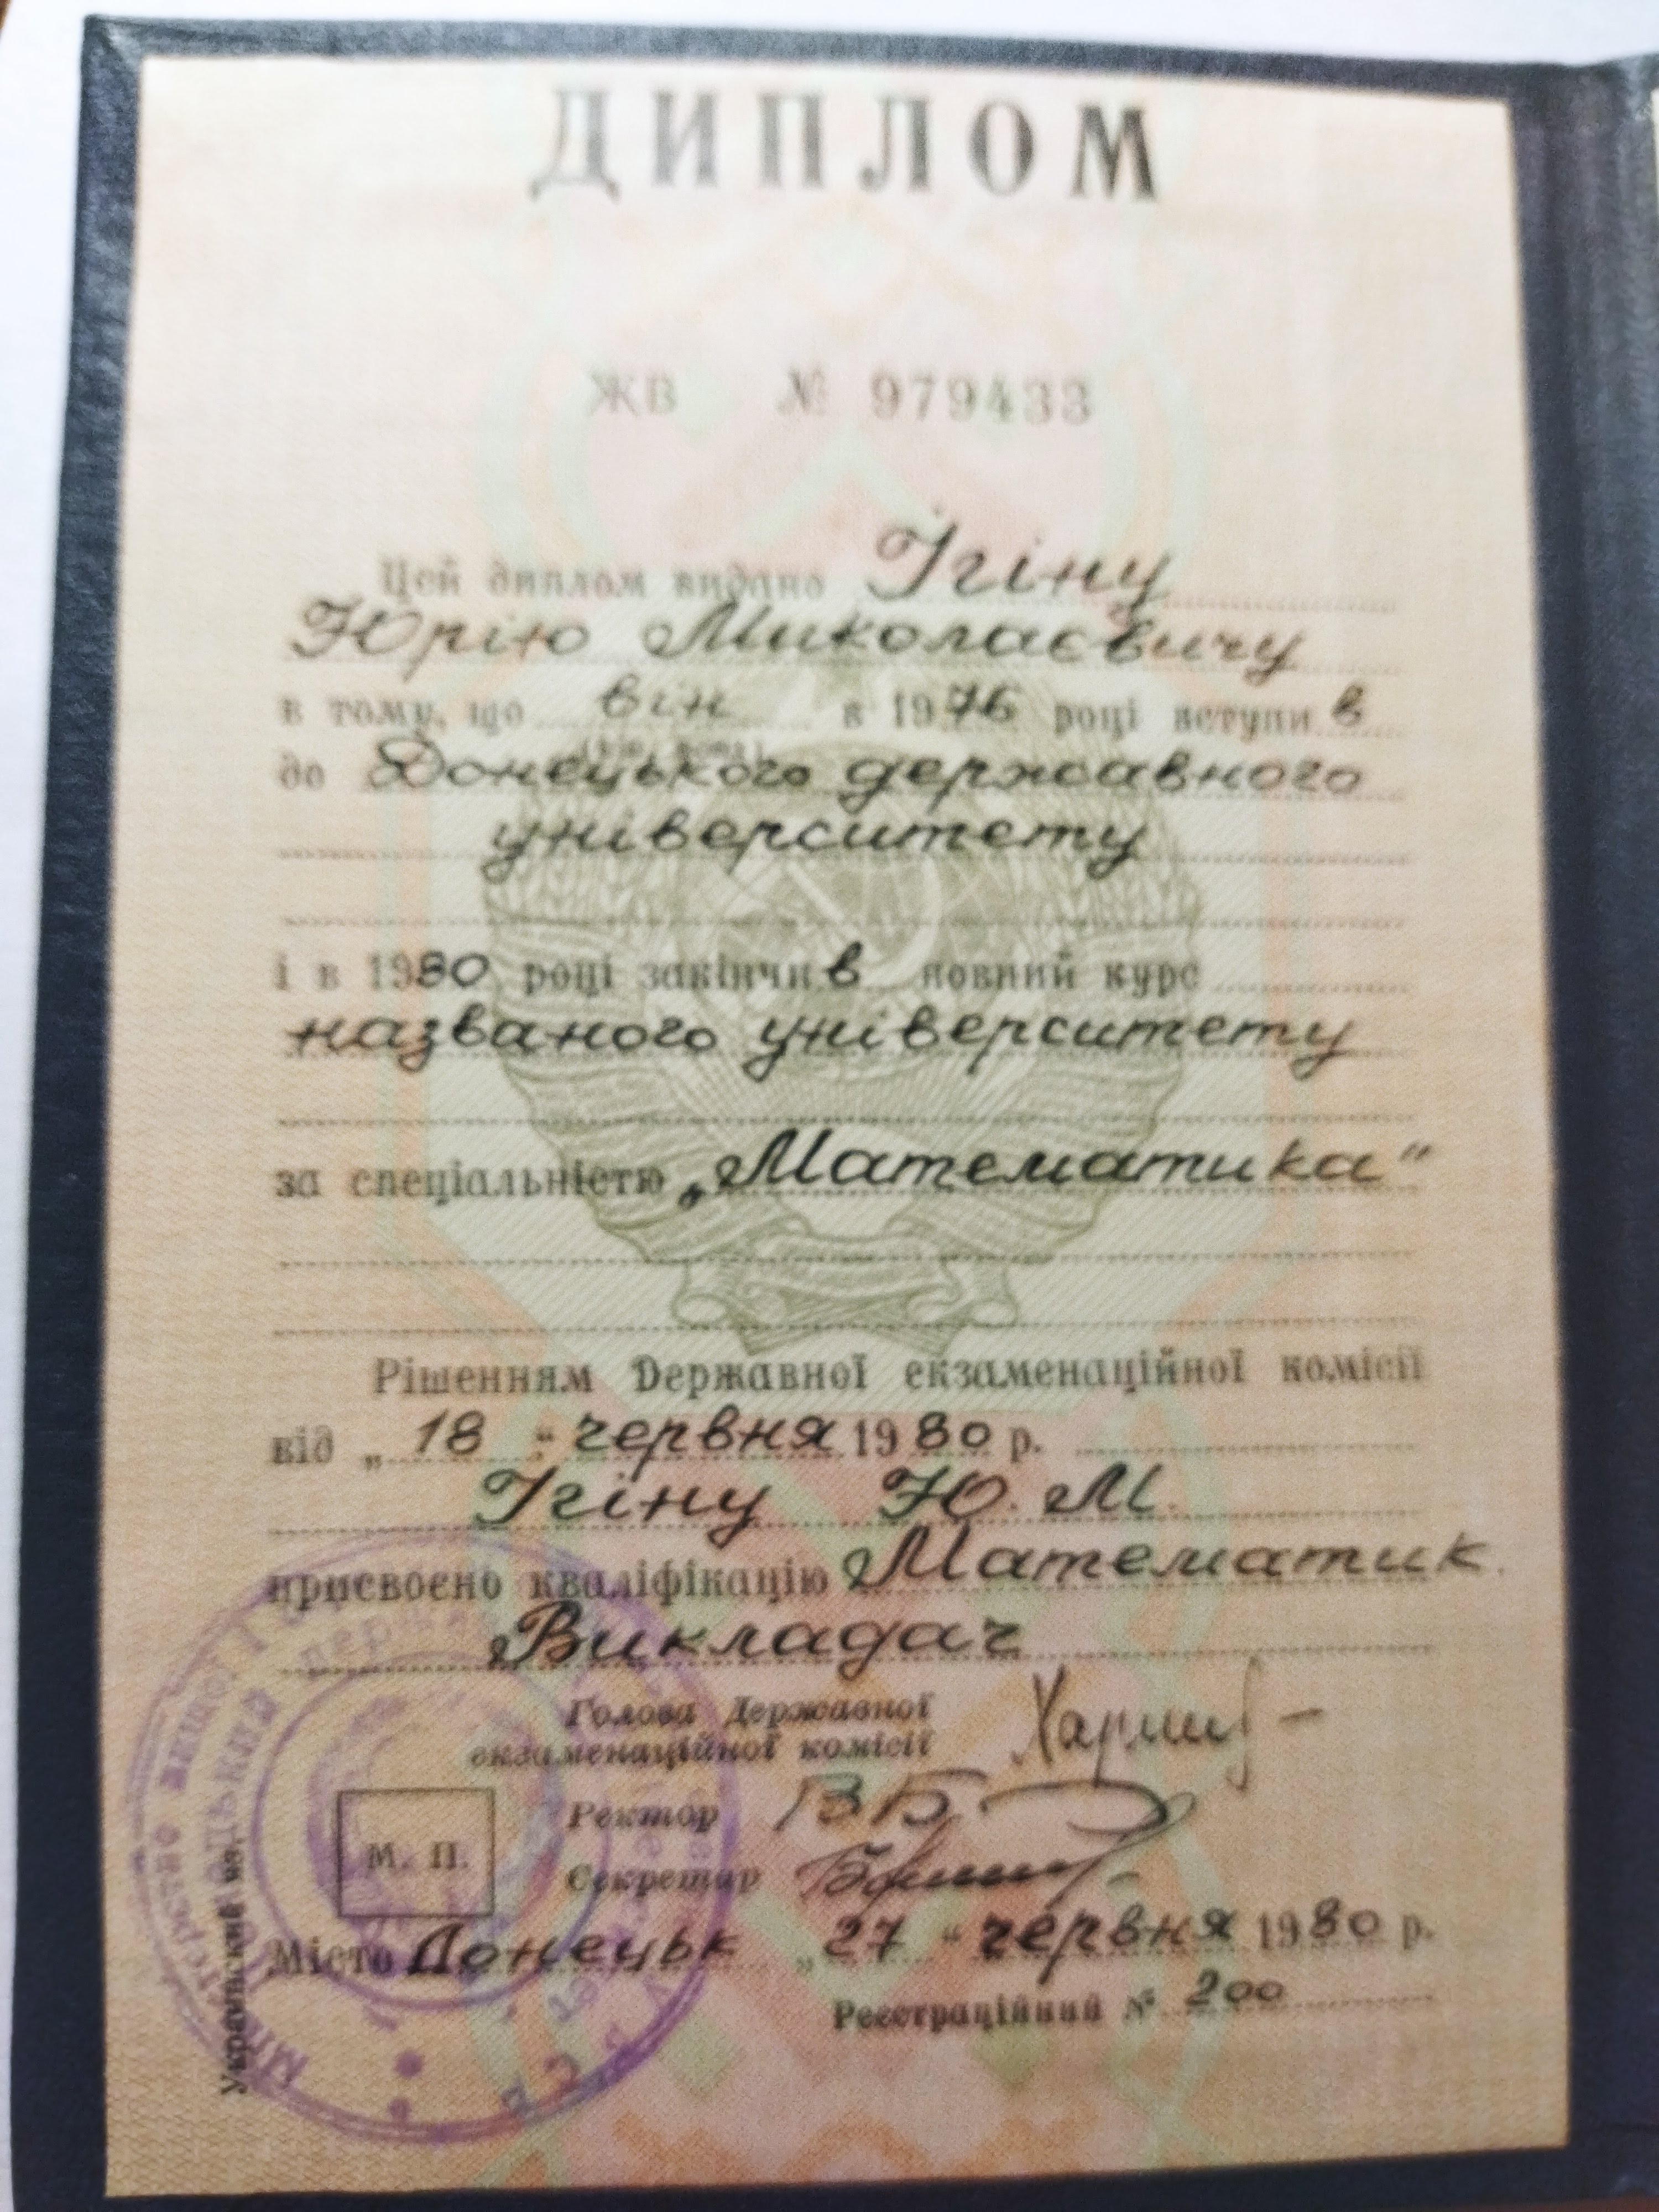 ДИПЛОМ
ЖВ № 979433
Цей диплом видано Ігіну
Юрію Миколаєвичу
в тому, що він в 1976 році вступив
(він, вона)
до Донецького державного
університету
і в 1980 році закінчив повний курс
названого університету
за спеціальністю „Математика"
Рішенням Державної екзаменаційної комісії
від „18" червня 1980 р.
Ігіну Ю. М.
присвоєно кваліфікацію Математик.
Викладач
Голова Державної
екзаменаційної комісії
Ректор
Секретар
М. П.
Місто Донецьк „27" червня 1980 р.
Реєстраційний № 200
Українский яз.